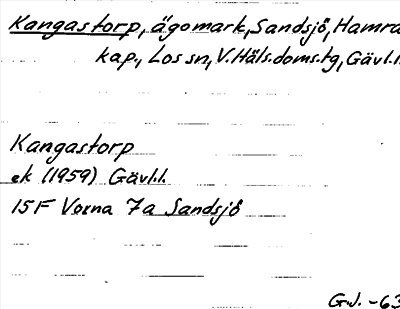 Kangastorp, ägomark, Sandsjö, Hamra
kap., Los sn, V. Häls. doms. tg, Gävl. l.
Kangastorp
ek (1959) Gävl. l.
15F Voxna 7a Sandsjö
G.J. -63